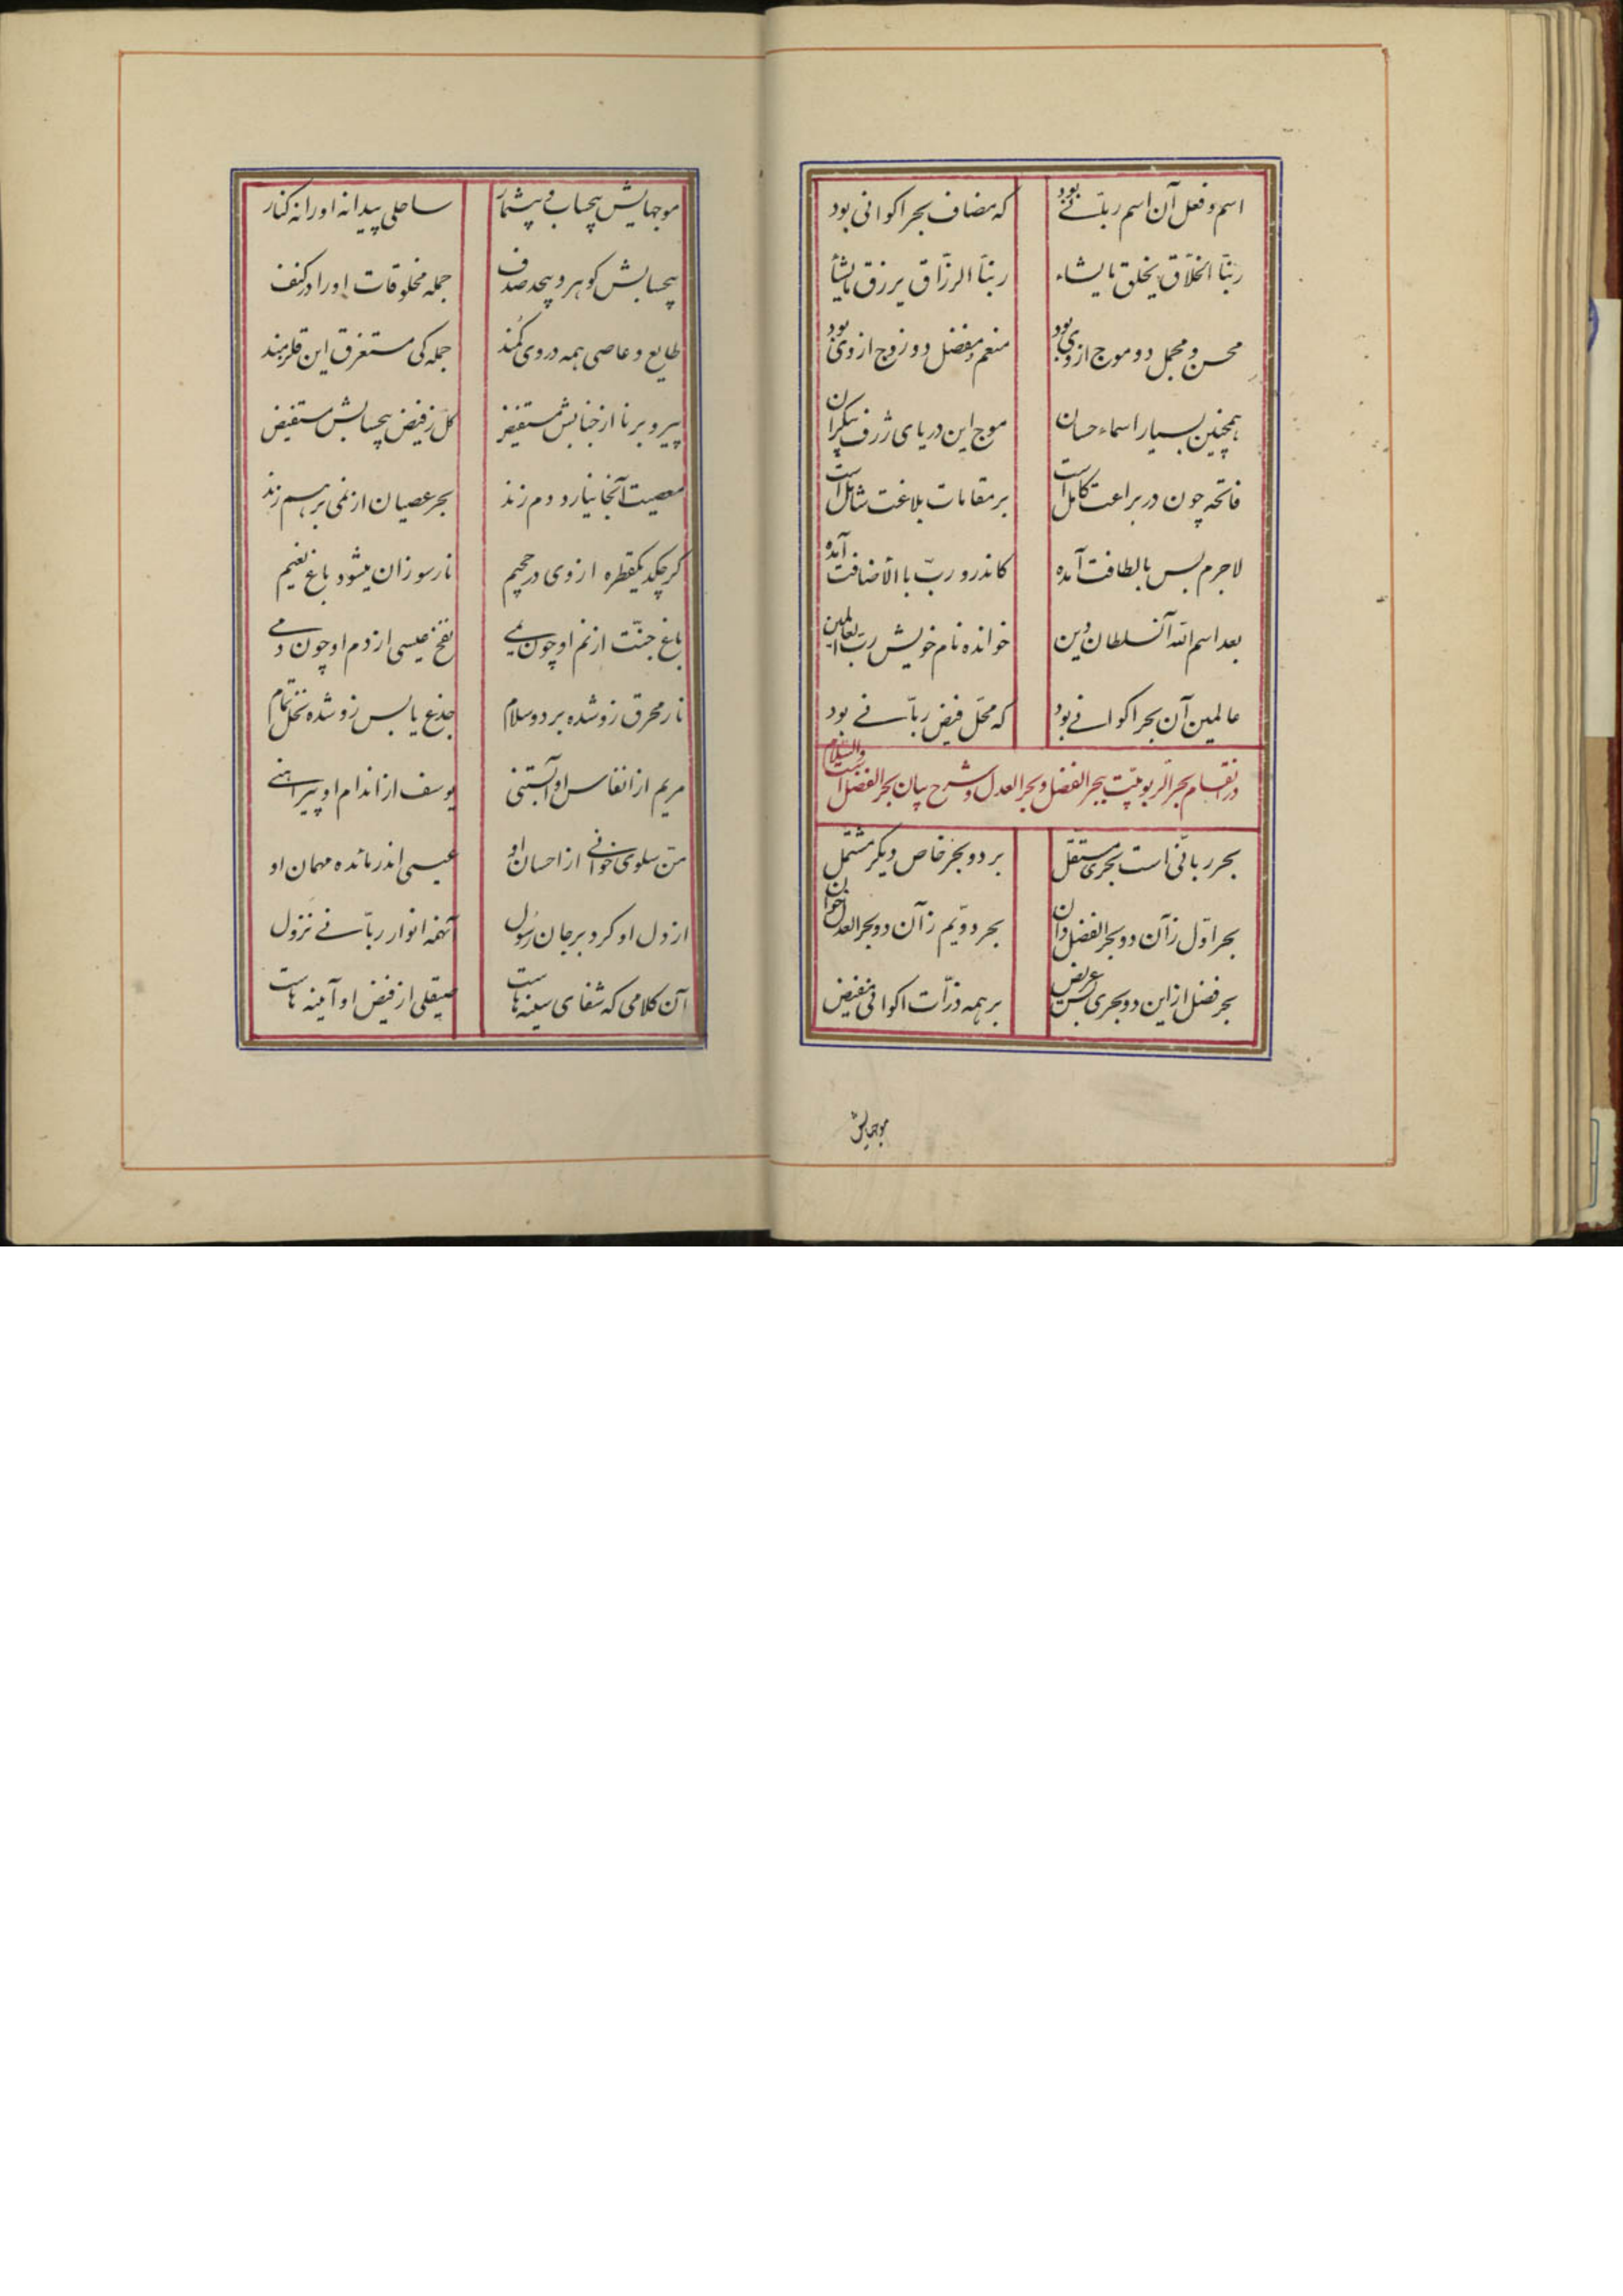 اسم و فعل آن اسم ربّانے بود که مضاف بحر اکوانی بود
ربنّا الخلّاق یخلق مایشاء ربنّا الرزّاق یرزق مایشأ
محسن و مجمل دو موج از وی بود منعم و مفضل دو زوج از وی بود
همچنین بسیار اسماء حسان موج این دریای ژرف بیکران
فاتحه چون در براعت کامل است بر مقامات بلاغت شامل است
لاجرم بس بالطافت آمده کاندرو ربّ باالأضافت آمده
بعد اسم اللّه آنسلطان دین خوانده نام خویش رب العالمین
عالمین آن بحر اکوانے بود که محلّ فیض ربّانے بود
در انقسام بحر الربوبیّت ببحر الفضل و بحر العدل و شرح بیان بحر الفضل است والسّلام
بحر ربانّی است بحری مستقل بر دو بحر خاص دیگر مشتمل
بحر اوّل زآن دو بحر الفضل دان بحر دویّم زآن دو بحر العدل خوان
بحر فضل از این دو بحری بس عریض بر همه ذرّات اکوانی مفیض
موجهایش
موجهایش بیحساب و بیشمار ساحلی پیدا نه او را نه کنار
بیحسابش کوهر و بیحد صدف جمله مخلوقات او را در کنف
طایع و عاصی همه در وی کمند جمله کی مستغرق این قلزمند
پیر و برنا از جنابش مستفیض کل ز فیض بیحسابش مستفیض
معصیت آنجا نیارد دم زند بحر عصیان از نمی برهم زند
کر چکد یکقطره از وی در جحیم نار سوزان میشود باغ نعیم
باغ جنّت از نم او چون نمے نفخ عیسی از دم او چون دمے
نار محرق زو شده برد و سلام جذع یابس زو شده نخل تمام
مریم از انفاس او آبستنی یوسف از اندام او پیراهنے
منّ سلوی خوانے از احسان او عیسی اندر مائده مهمان او
از دل او کرد بر جان رسُول آنهمه انوار ربّانے نزول
آن کلامی که شفای سینه هاست صیقلی از فیض او آینه هاست